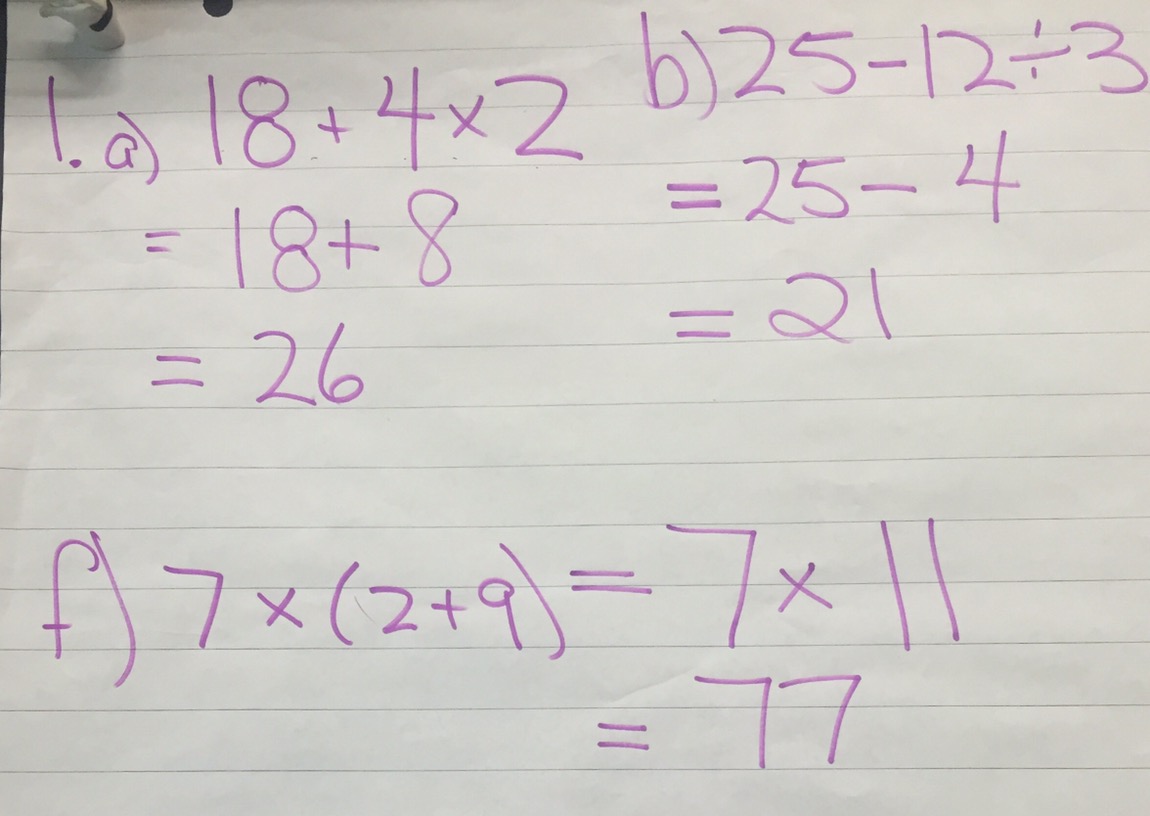 1. a) 18 + 4 × 2
= 18 + 8
= 26
b) 25 - 12 ÷ 3
= 25 - 4
= 21
f) 7 × (2 + 9) = 7 × 11
= 77